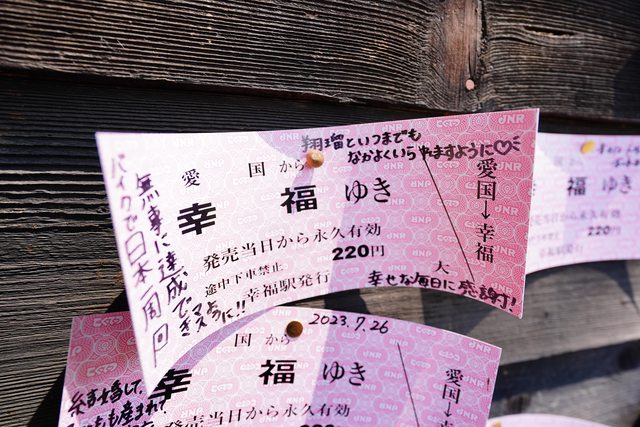 翔瑠といつまでも
なかよくいらやますように♡
愛国から
幸福ゆき
発売当日から永久有効
220円
途中下車禁止
大
幸福駅発行
愛国→幸福
幸せな毎日に感謝!
バイクで日本一周
無事に達成でき
ますように!!
JNR
2023.7.26
国から
幸福ゆき
発売当日から永久有効
愛国→幸
結婚して、
福ゆき
220円